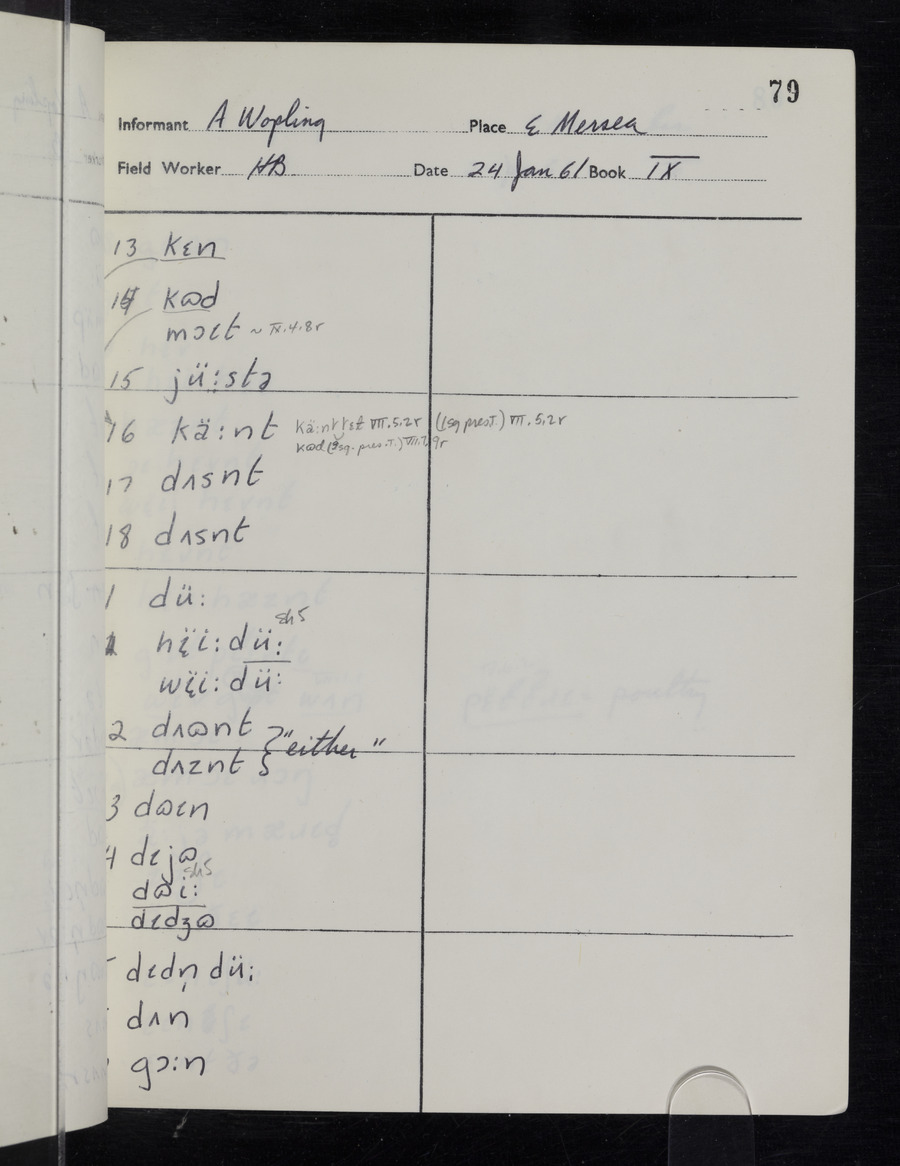 79
Informant A Wopling Place E Mersea
Field Worker HB Date 24 Jan 61 Book IX
13 kɛn
14 kɷd
mɔɩt ~ IX.4.8r
15 jü:stə
16 kä:nt kä:nt jɛt VII.5.2r (1sg pres.T.) VII.5.2r
kɷd (3sg. pres.T.) VII.7.9r
17 dʌsnt
18 dʌsnt
1 dü:
hɛ̈i: dü: sh5
wɛ̈i: dü:
2 dʌɷnt
dʌznt } "either"
3 dɷɩn
4 dɩjɷ
dɷi: sh5
dɩdʒɷ
5 dɩdn̩ dü:
dʌn
gɔ:n